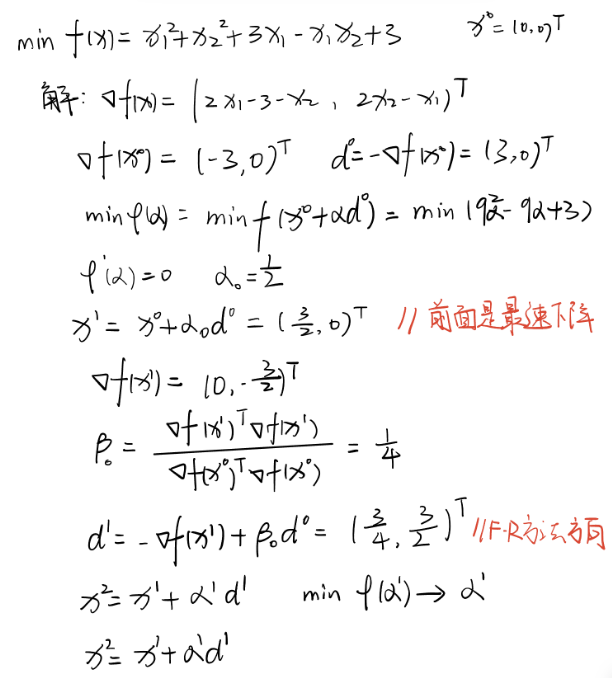 min f(x) = x₁²+x₂²+3x₁-x₁x₂+3  x⁰=(0,0)ᵀ
解: ∇f(x)= (2x₁-3-x₂ , 2x₂-x₁)ᵀ
∇f(x⁰) = (-3,0)ᵀ  d⁰=-∇f(x⁰)=(3,0)ᵀ
min φ(α) = min f(x⁰+αd⁰) = min (9α²-9α+3)
φ'(α)=0  α₀=1/2
x¹ = x⁰+α₀d⁰ = (3/2,0)ᵀ // 前面是最速下降
∇f(x¹) = (0,-3/2)ᵀ
β₀ = ∇f(x¹)ᵀ∇f(x¹) / ∇f(x⁰)ᵀ∇f(x⁰) = 1/4
d¹=-∇f(x¹)+β₀d⁰= (3/4, 3/2)ᵀ //F-R方法方向
x²=x¹+α¹d¹  min φ(α¹)→α¹
x²=x¹+α¹d¹